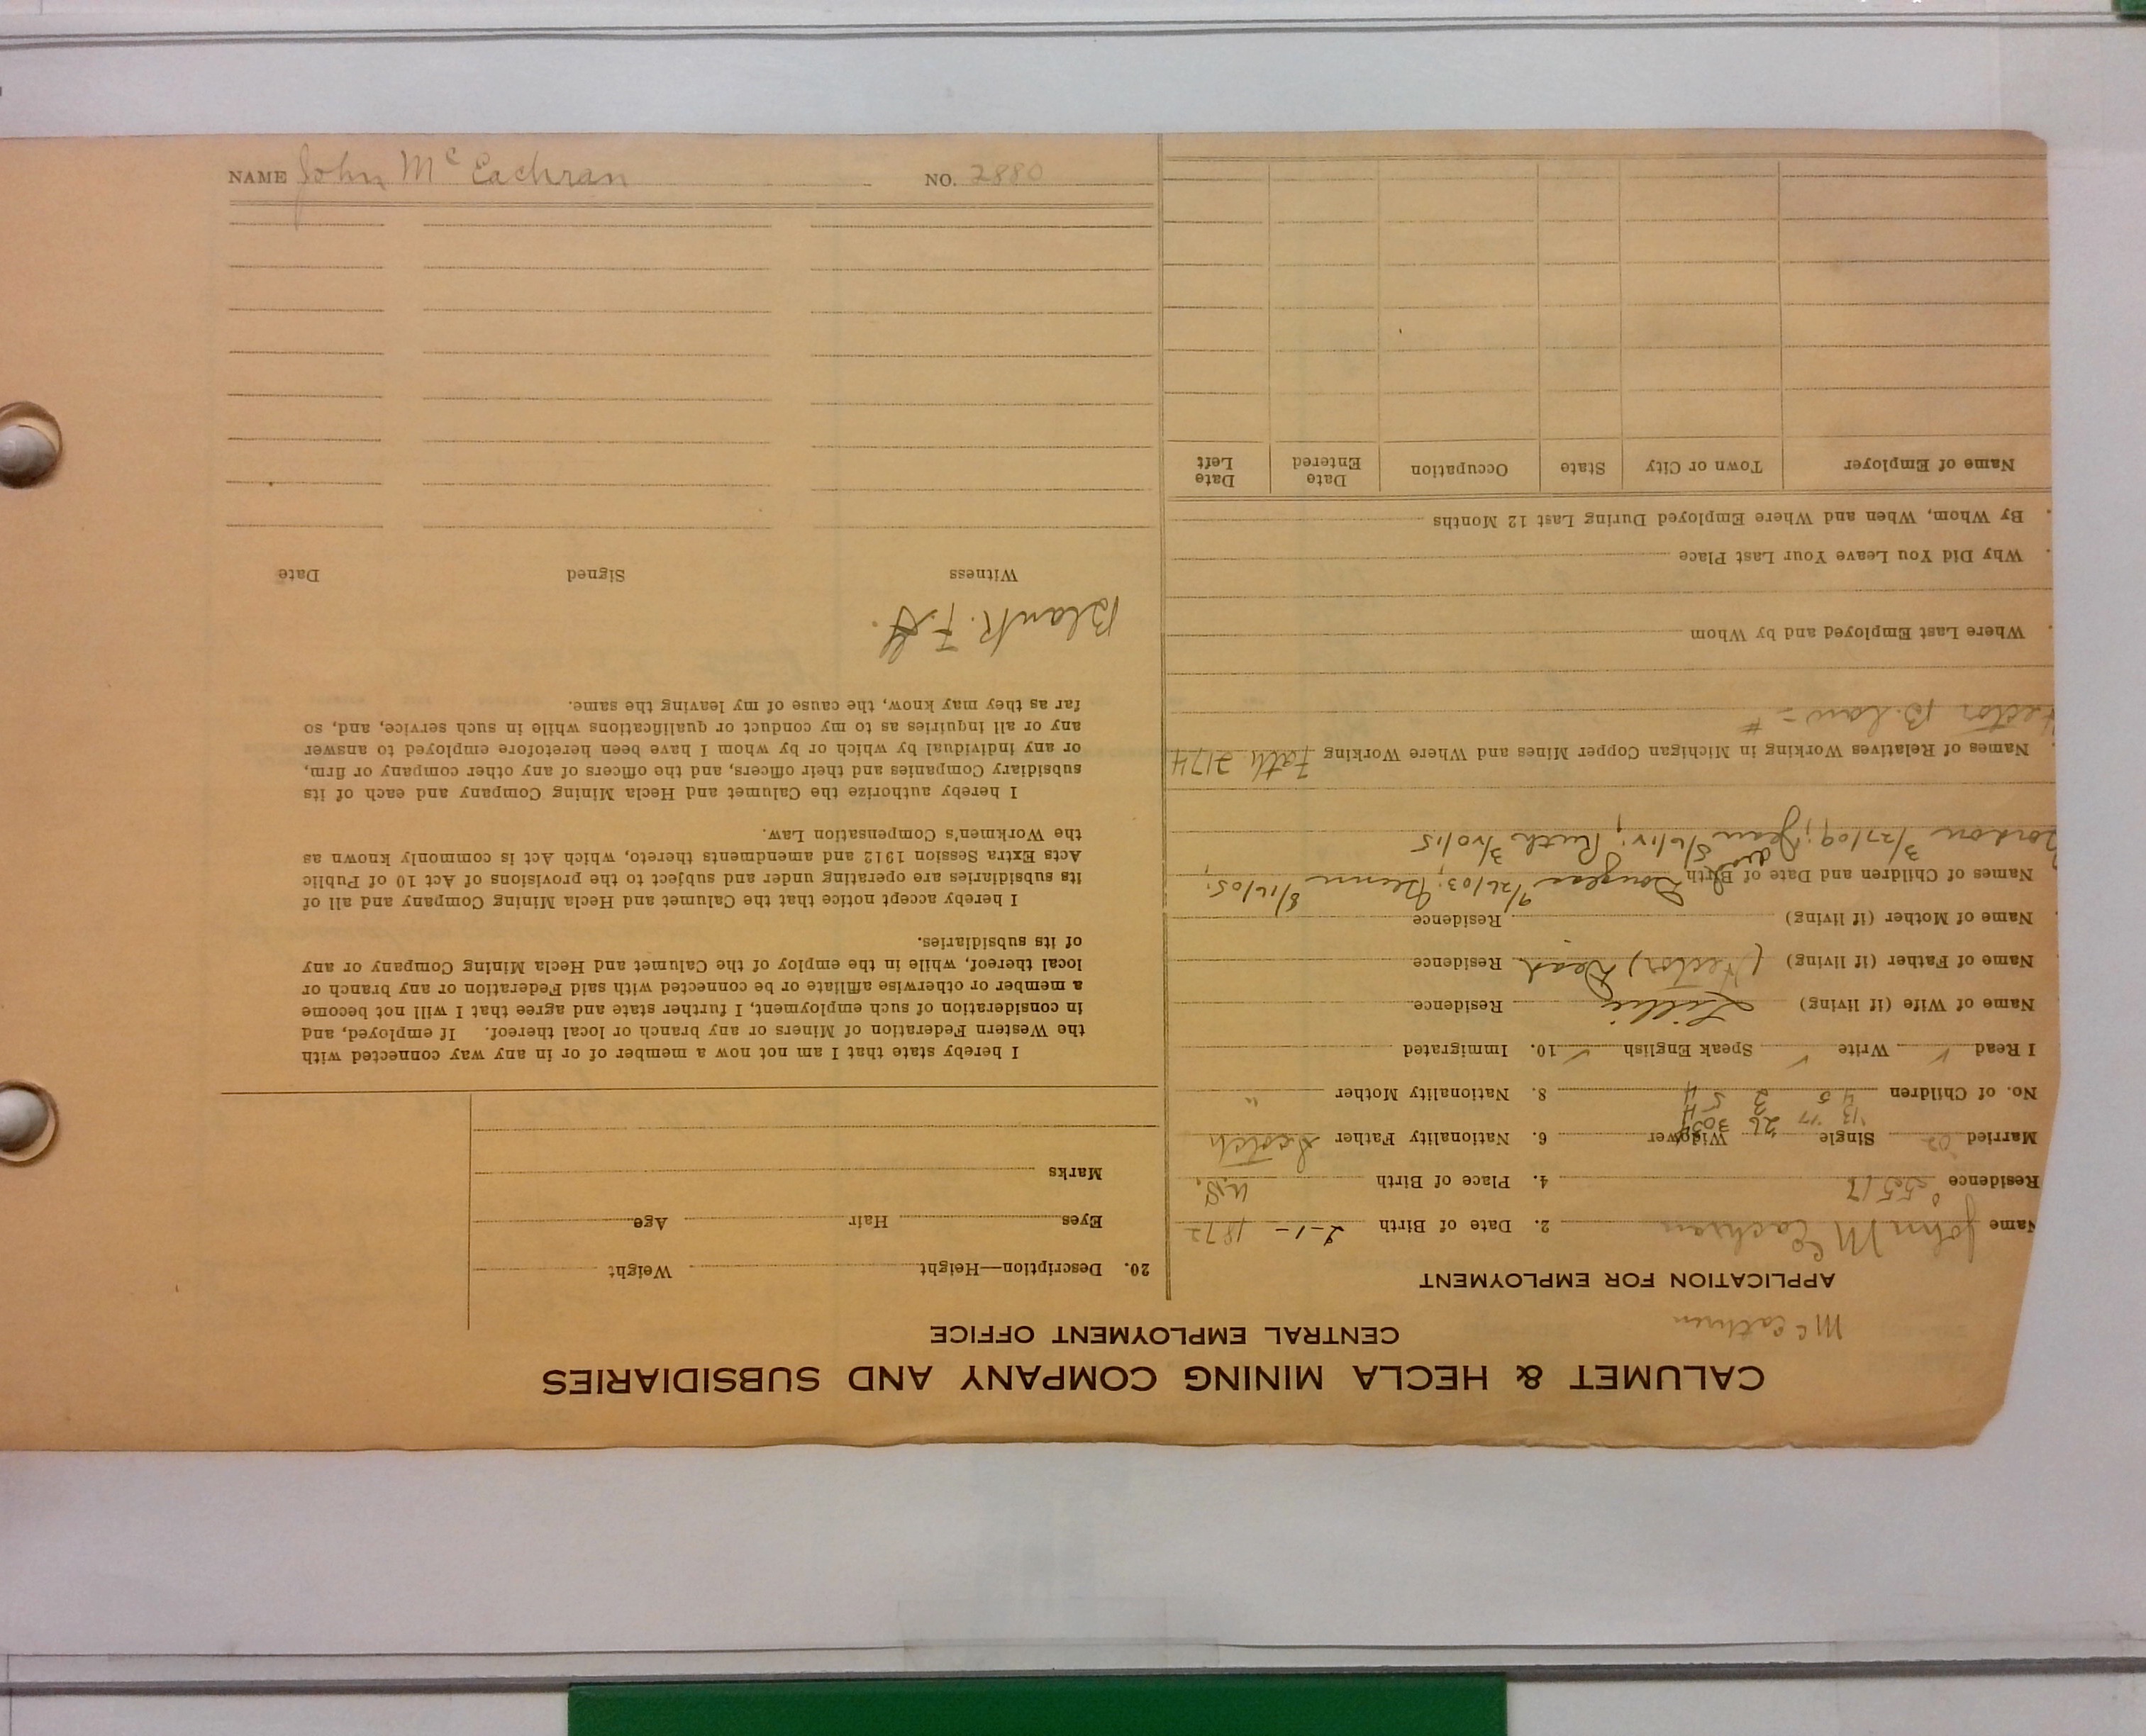 CALUMET & HECLA MINING COMPANY AND SUBSIDIARIES
CENTRAL EMPLOYMENT OFFICE
McEathron
APPLICATION FOR EMPLOYMENT
Name John McEachran 2. Date of Birth 2-1-1872
Residence 5517 4. Place of Birth U.S.
Married '02 Single Widower 6. Nationality Father Scotch
'13 '17 26 30
No. of Children 4 5 3 5 4 8. Nationality Mother "
I Read ✓ Write ✓ Speak English ✓ 10. Immigrated
Name of Wife (if living) Lillie Residence
Name of Father (if living) (Hector) Dead Residence
Name of Mother (if living) Residence
Names of Children and Date of Birth Douglas 9/26/03; Glenn 8/16/05;
Gordon 3/27/09; Jean 5/6/12; Ruth 3/20/15
dead
Names of Relatives Working in Michigan Copper Mines and Where Working Fath 2174
Hector B. law - #
Where Last Employed and by Whom
Why Did You Leave Your Last Place
By Whom, When and Where Employed During Last 12 Months
Name of Employer Town or City State Occupation Date Entered Date Left
20. Description—Height Weight
Eyes Hair Age
Marks
I hereby state that I am not now a member of or in any way connected with
the Western Federation of Miners or any branch or local thereof. If employed, and
in consideration of such employment, I further state and agree that I will not become
a member or otherwise affiliate or be connected with said Federation or any branch or
local thereof, while in the employ of the Calumet and Hecla Mining Company or any
of its subsidiaries.
I hereby accept notice that the Calumet and Hecla Mining Company and all of
its subsidiaries are operating under and subject to the provisions of Act 10 of Public
Acts Extra Session 1912 and amendments thereto, which Act is commonly known as
the Workmen's Compensation Law.
I hereby authorize the Calumet and Hecla Mining Company and each of its
subsidiary Companies and their officers, and the officers of any other company or firm,
or any individual by which or by whom I have been heretofore employed to answer
any or all inquiries as to my conduct or qualifications while in such service, and, so
far as they may know, the cause of my leaving the same.
Blank. F.H.
Witness Signed Date
NAME John McEachran NO. 2880